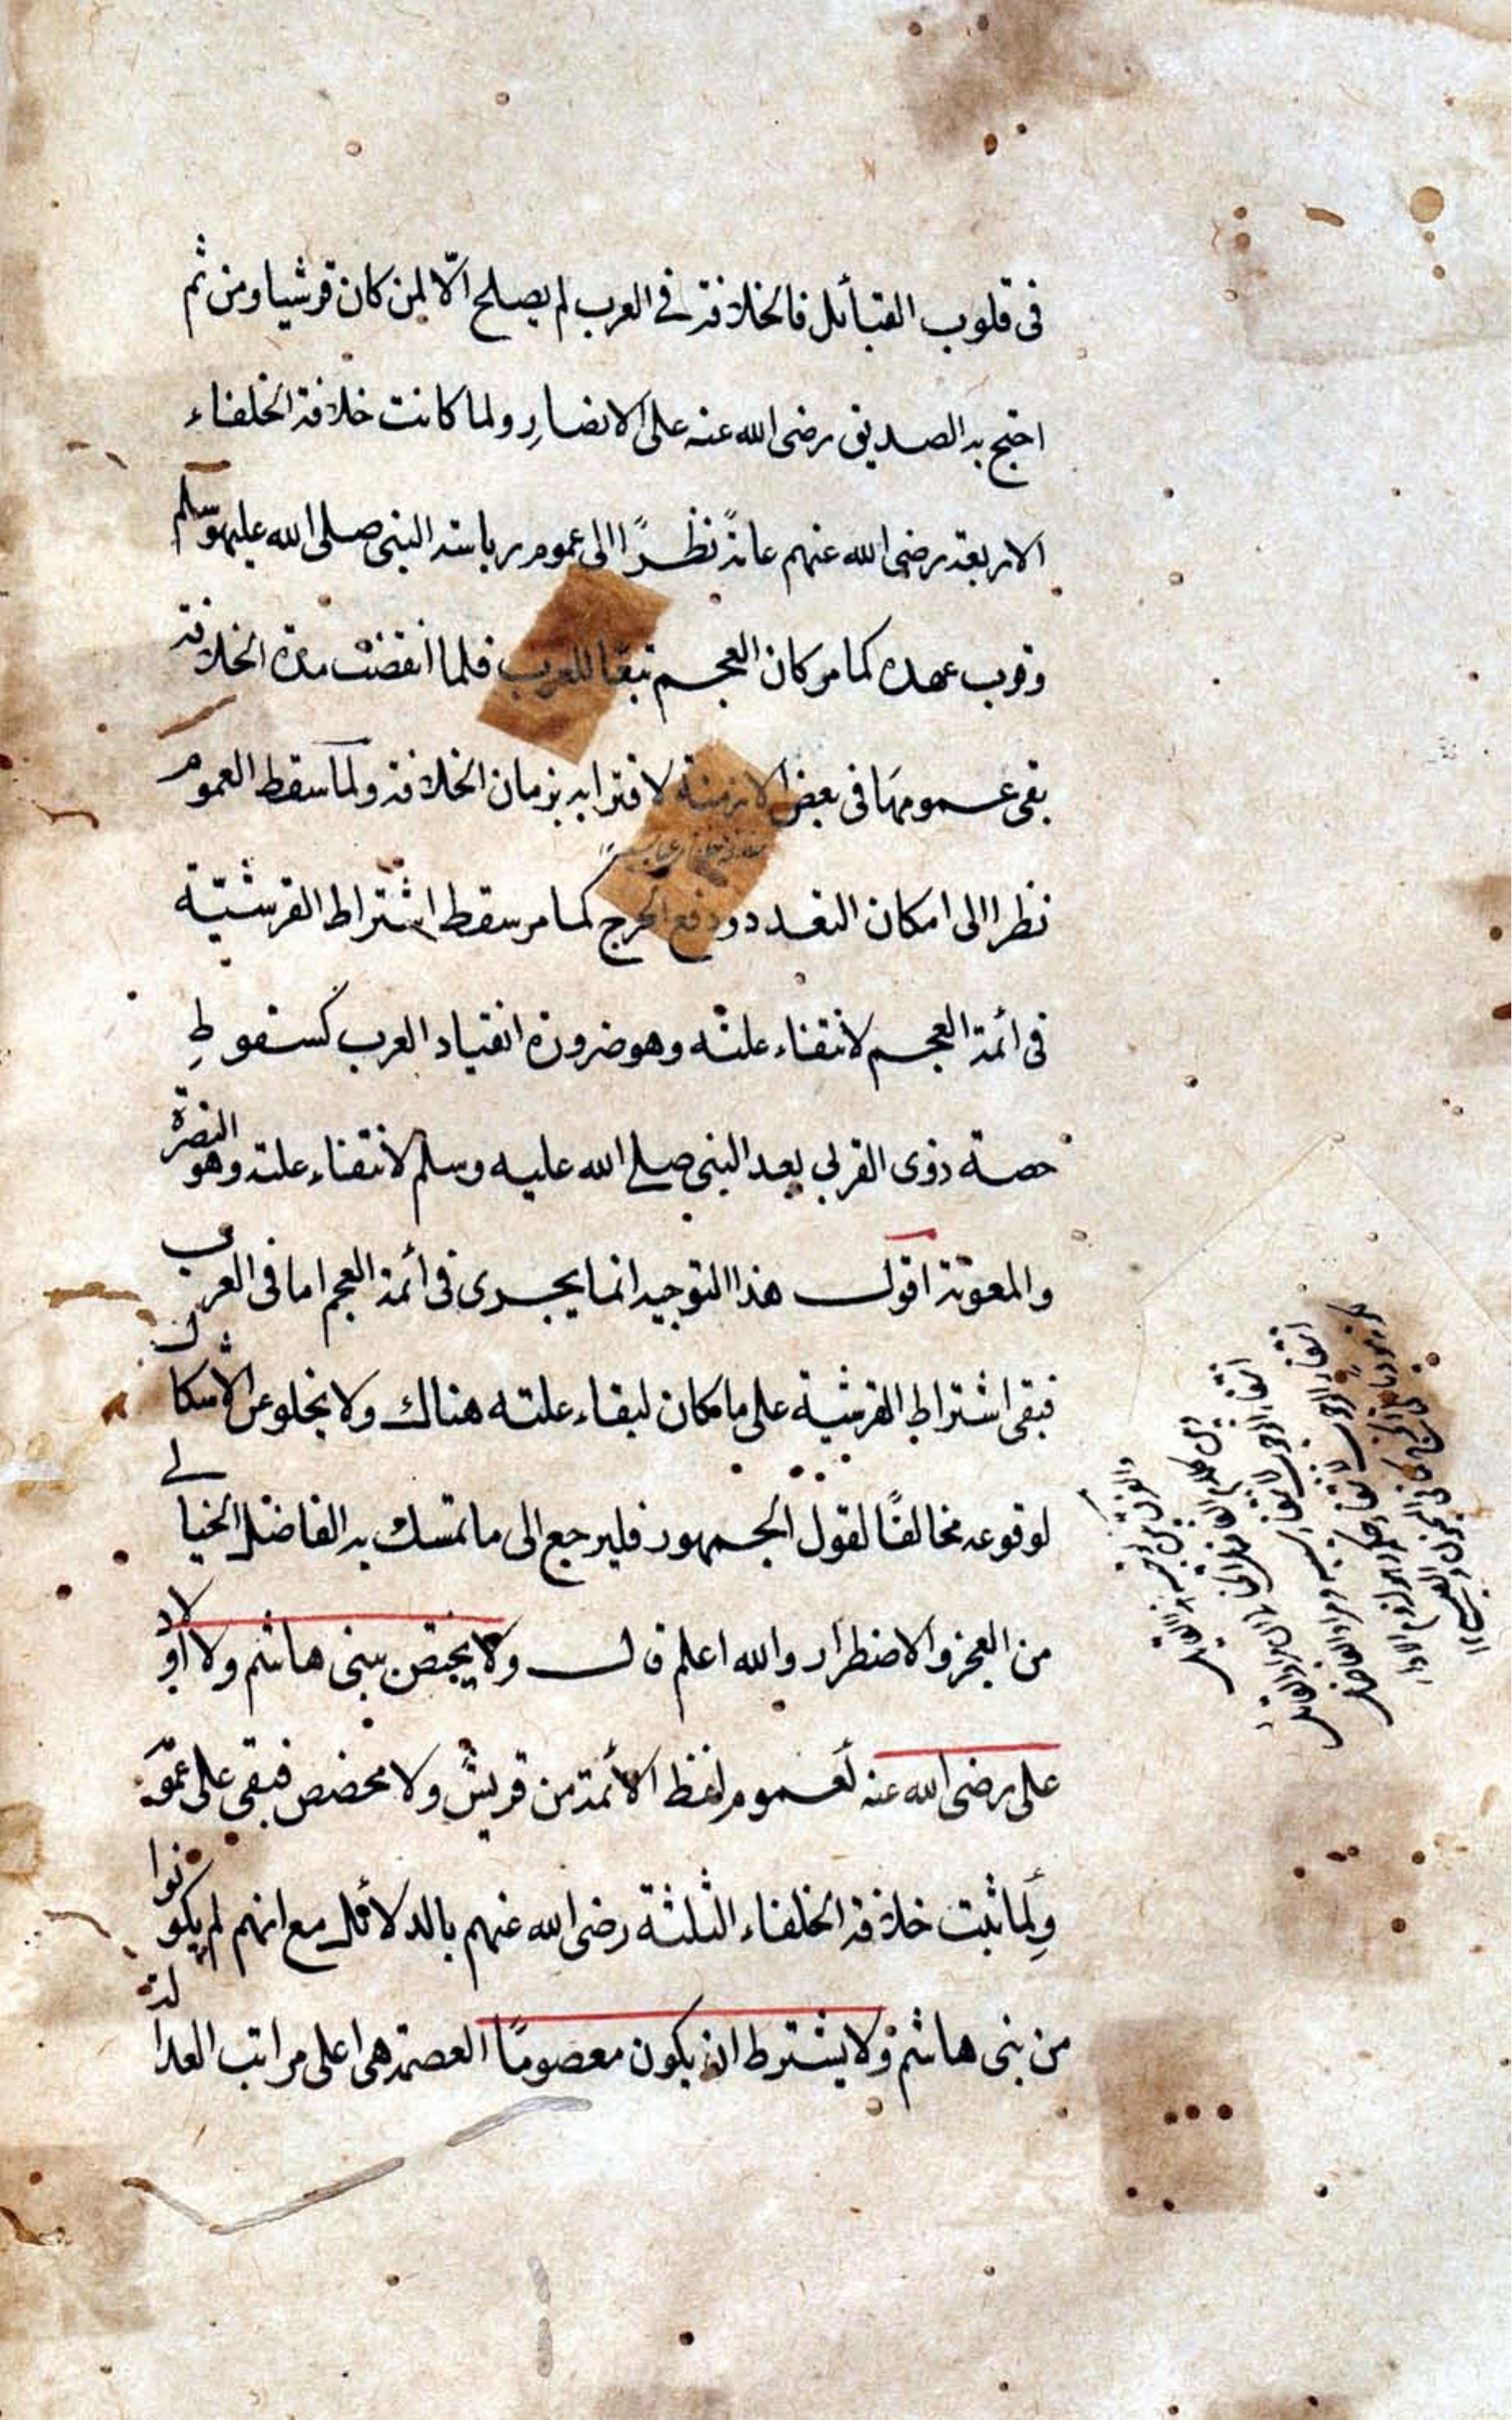 فى قلوب القبائل فالخلافة فى العرب لم يصلح الّا لمن كان قرشيا ومن ثم
احتج به الصديق رضى الله عنه على الانصار ولما كانت خلافة الخلفاء
الاربعة رضى الله عنهم عامةً نظرًا الى عموم رياسة النبى صلى الله عليه وسلم
وقرب عهده كما مر كان العجم تبعًا للعرب فلما انقضت مدة الخلافة
بقى عمومها فى بعض الازمنة لاقترابه بزمان الخلافة ولما سقط العموم
نظرا الى امكان التعدد ودفع الحرج كما مر سقط اشتراط القرشية
فى أئمة العجم لانتفاء علته وهو ضرورة انقياد العرب كسقوط
حصة ذوى القربى بعد النبى صلى الله عليه وسلم لانتفاء علته وهو النصرة
والمعونة اقول هذا التوجيه انما يجرى فى أئمة العجم اما فى العرب
فبقى اشتراط القرشية على ما كان لبقاء علته هناك ولا يخلو عن الاشكال
لوقوعه مخالفًا لقول الجمهور فليرجع الى ما تمسك به الفاضل الخيالى
من العجز والاضطرار والله اعلم قال ولا يختص ببنى هاشم ولا اولاد
على رضى الله عنه لعموم لفظ الأئمة من قريش ولا مخصص فبقى على عمومه
ولما ثبت خلافة الخلفاء الثلثة رضى الله عنهم بالدلائل مع انهم لم يكونوا
من بنى هاشم ولا يشترط ان يكون معصومًا العصمة هى اعلى مراتب العدالة